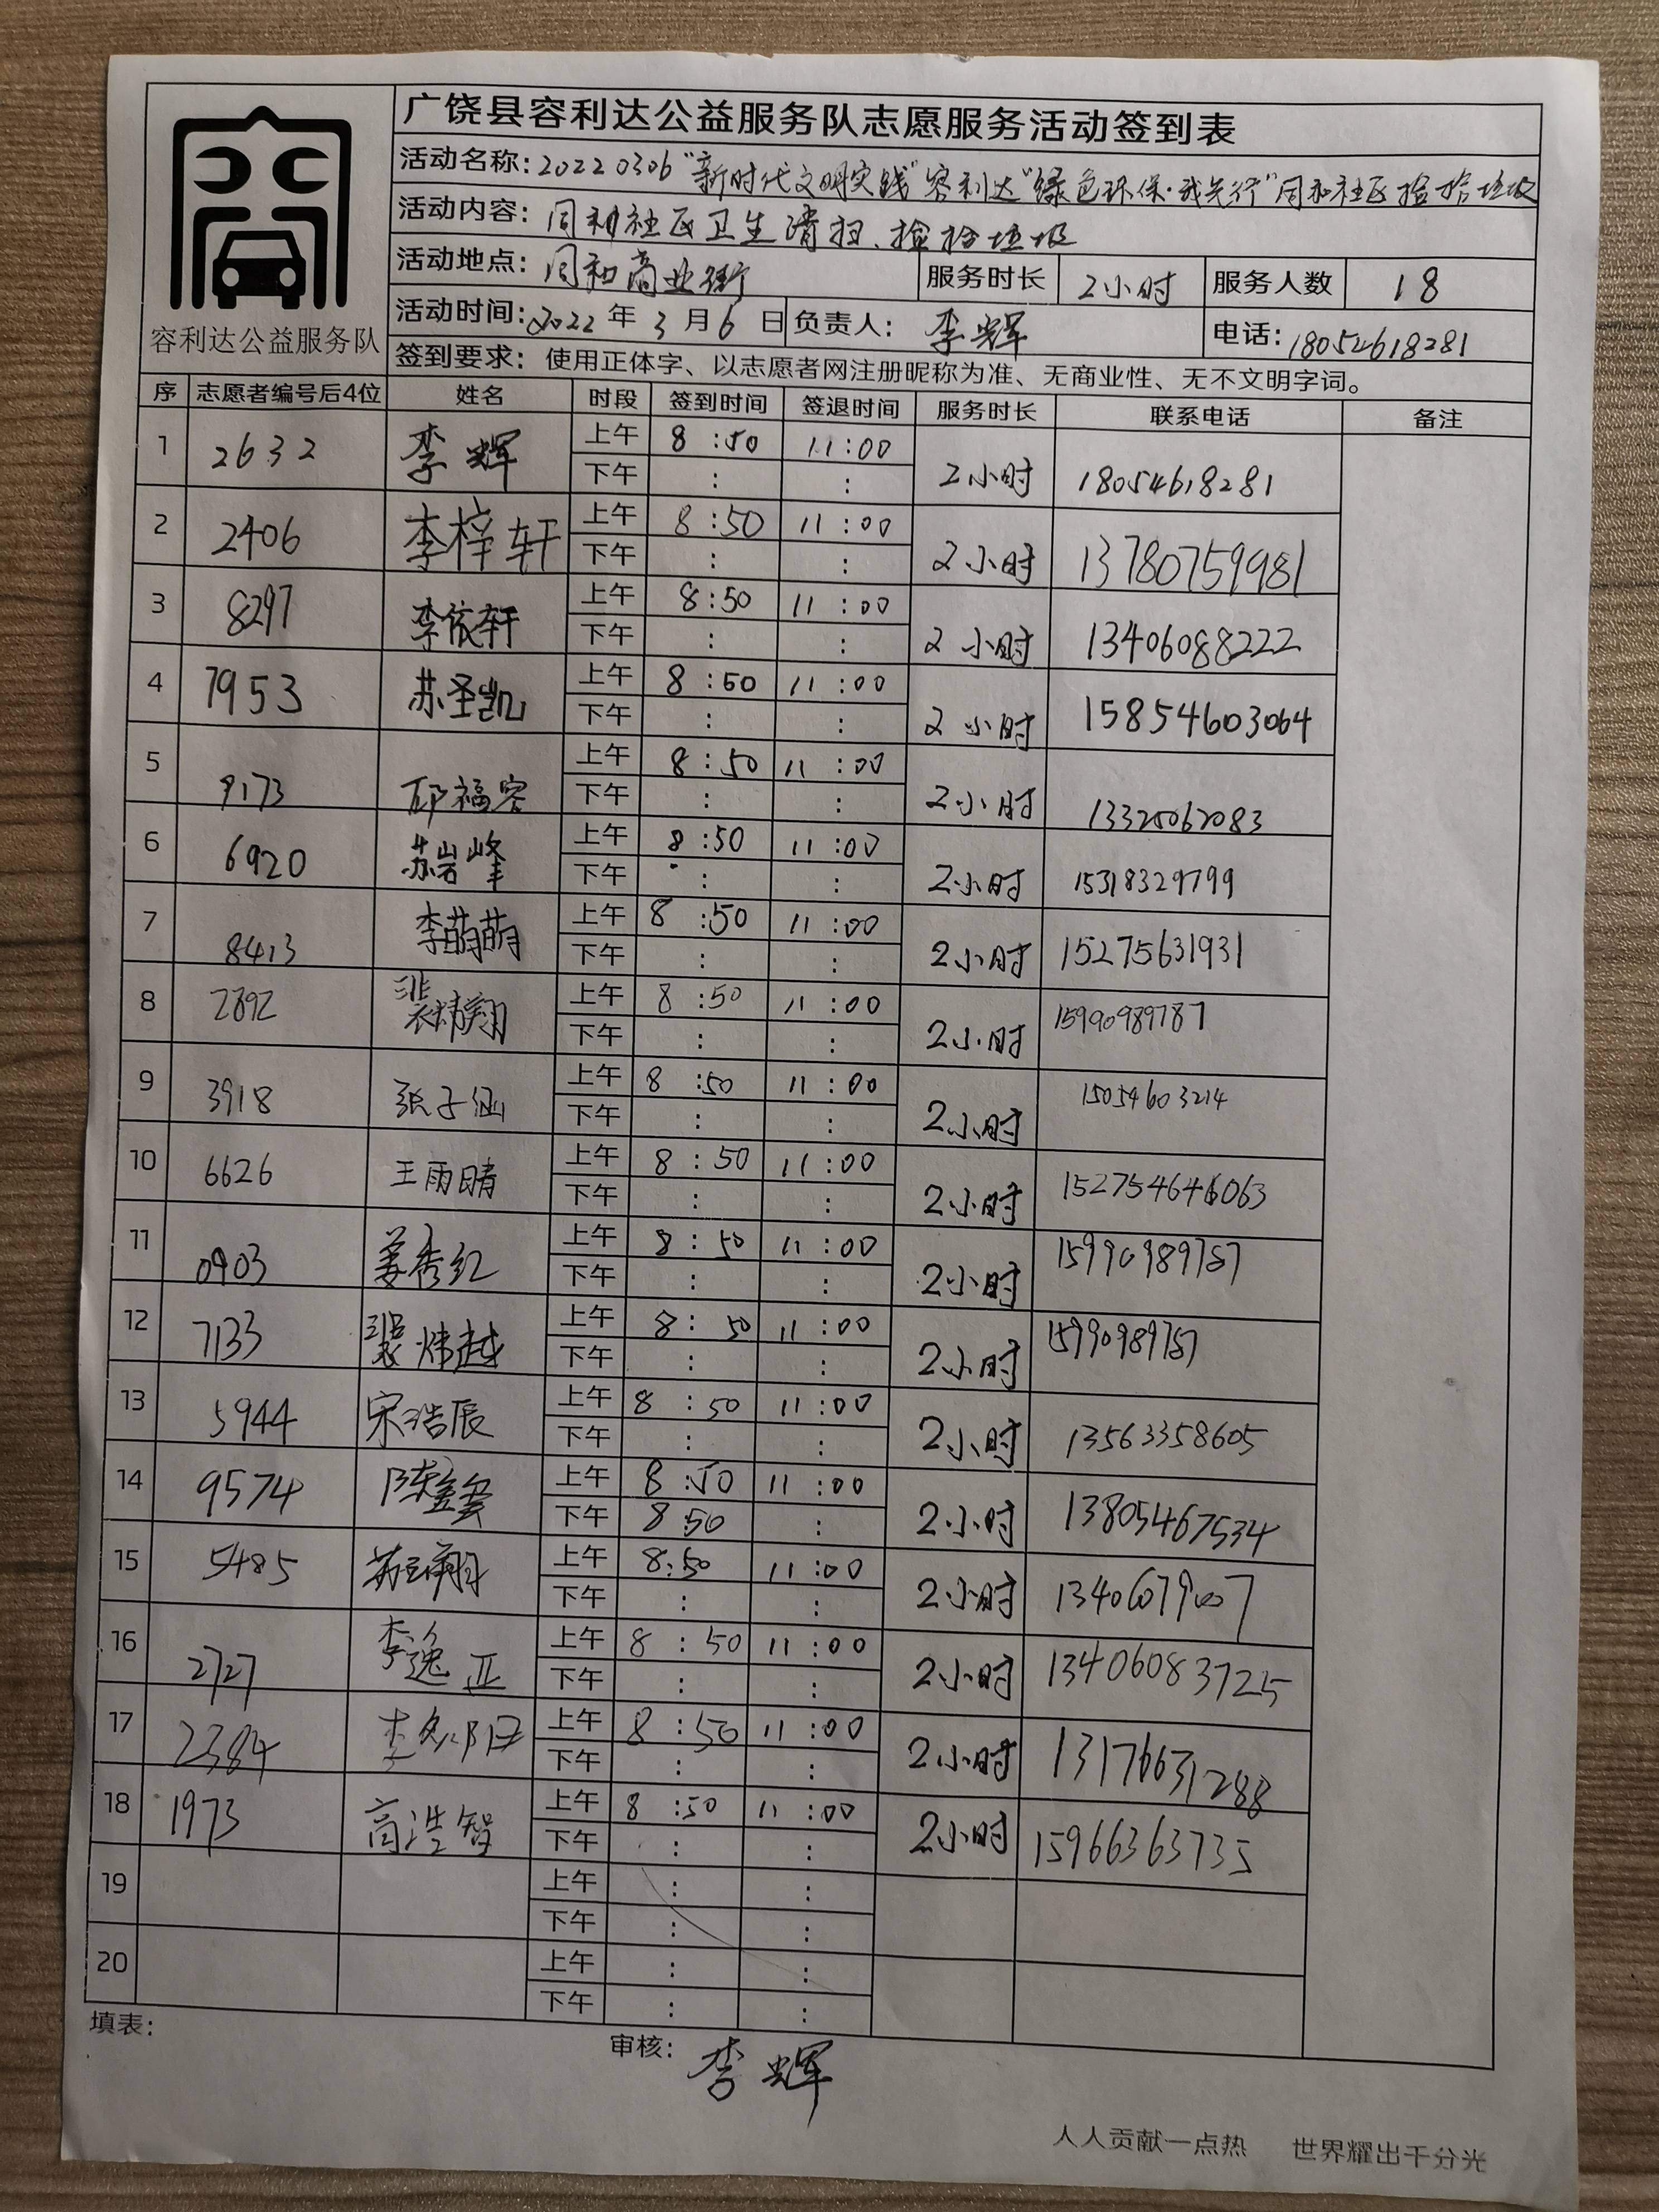 广饶县容利达公益服务队志愿服务活动签到表
活动名称：20220306“新时代文明实践”容利达“绿色环保·我先行”同和社区捡拾垃圾
活动内容：同和社区卫生清扫、捡拾垃圾
活动地点：同和商业街 服务时长 2小时 服务人数 18
活动时间：2022年3月6日 负责人：李辉 电话：18054618281
容利达公益服务队
签到要求：使用正体字、以志愿者网注册昵称为准、无商业性、无不文明字词。
序 志愿者编号后4位 姓名 时段 签到时间 签退时间 服务时长 联系电话 备注
1 2632 李辉 上午 8:50 11:00 2小时 18054618281
下午 : :
2 2406 李梓轩 上午 8:50 11:00 2小时 13780759981
下午 : :
3 8297 李依轩 上午 8:50 11:00 2小时 13406088222
下午 : :
4 7953 苏圣凯 上午 8:50 11:00 2小时 15854603064
下午 : :
5 9173 邱福容 上午 8:50 11:00 2小时 13325062083
下午 : :
6 6920 苏岩峰 上午 8:50 11:00 2小时 15318329799
下午 : :
7 8413 李萌萌 上午 8:50 11:00 2小时 15275631931
下午 : :
8 2892 裴精翔 上午 8:50 11:00 2小时 15990989787
下午 : :
9 3918 张子涵 上午 8:50 11:00 2小时 15054603214
下午 : :
10 6626 王雨晴 上午 8:50 11:00 2小时 152754646063
下午 : :
11 0903 姜秀红 上午 8:50 11:00 2小时 15990989787
下午 : :
12 7133 裴炜越 上午 8:50 11:00 2小时 15990989787
下午 : :
13 5944 宋浩辰 上午 8:50 11:00 2小时 13563358605
下午 : :
14 9574 上午 8:50 11:00 2小时 13805467534
下午 8:50 :
15 5485 上午 8:50 11:00 2小时 13406079007
下午 : :
16 2727 李逸正 上午 8:50 11:00 2小时 13406083725
下午 : :
17 2384 上午 8:50 11:00 2小时 13176631288
下午 : :
18 1973 高浩智 上午 8:50 11:00 2小时 15966363735
下午 : :
19 上午 : :
下午 : :
20 上午 : :
下午 : :
填表： 审核：李辉
人人贡献一点热 世界耀出千分光